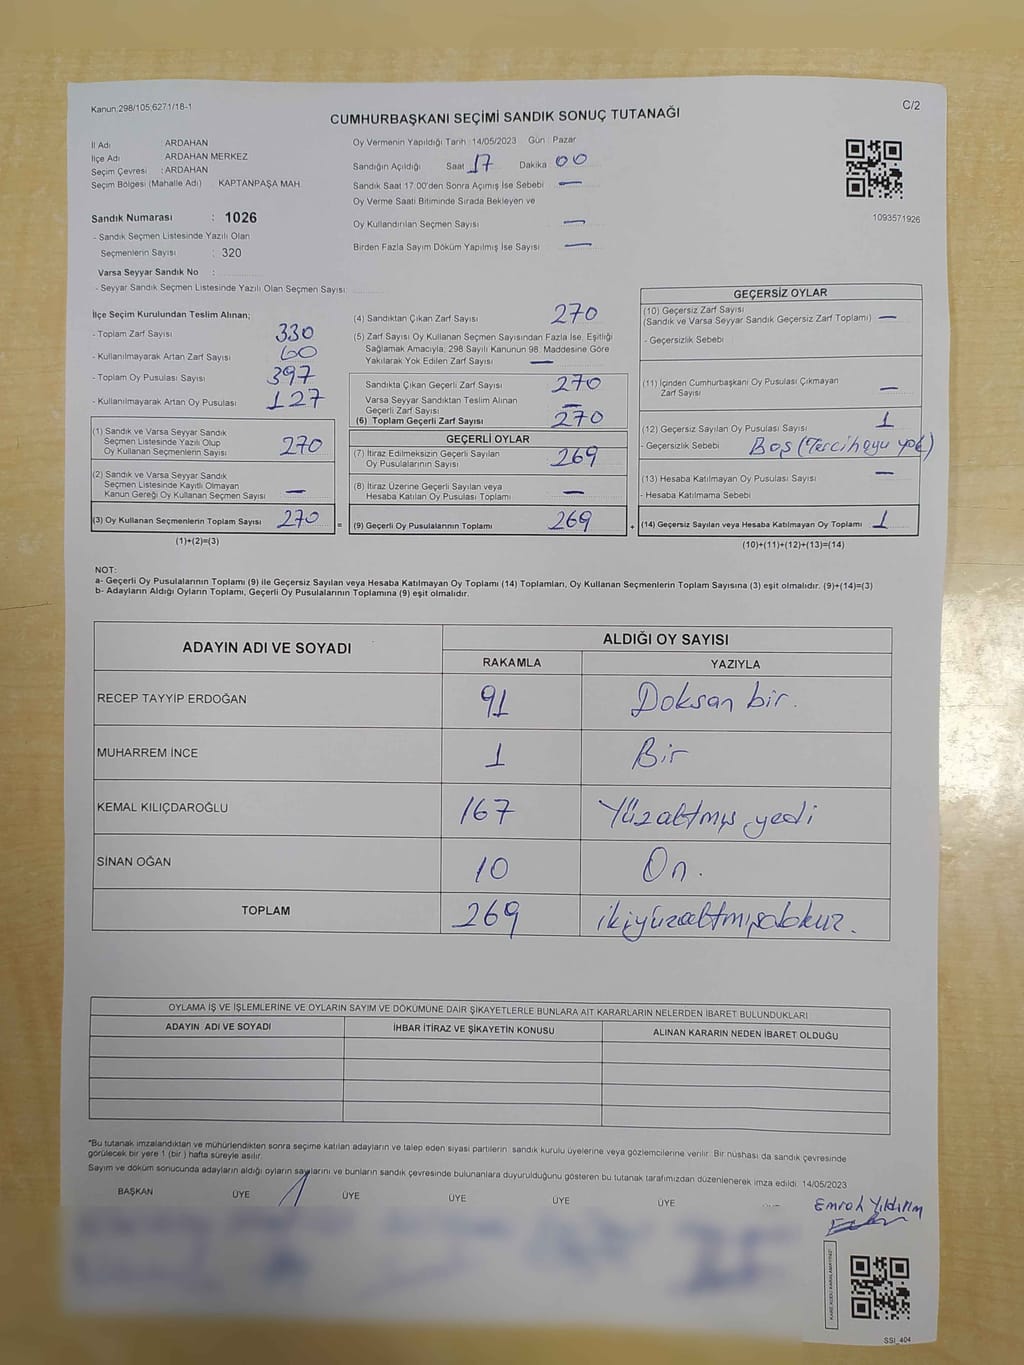 Kanun:298/105;6271/18-1
C/2
CUMHURBAŞKANI SEÇİMİ SANDIK SONUÇ TUTANAĞI
İl Adı ARDAHAN
İlçe Adı ARDAHAN MERKEZ
Seçim Çevresi : ARDAHAN
Seçim Bölgesi (Mahalle Adı) KAPTANPAŞA MAH
Sandık Numarası : 1026
- Sandık Seçmen Listesinde Yazılı Olan
Seçmenlerin Sayısı : 320
Varsa Seyyar Sandık No :
- Seyyar Sandık Seçmen Listesinde Yazılı Olan Seçmen Sayısı:
Oy Vermenin Yapıldığı Tarih 14/05/2023 Gün Pazar
Sandığın Açıldığı Saat 17 Dakika 00
Sandık Saat 17:00'den Sonra Açılmış İse Sebebi —
Oy Verme Saati Bitiminde Sırada Bekleyen ve
Oy Kullandırılan Seçmen Sayısı —
Birden Fazla Sayım Döküm Yapılmış İse Sayısı —
1093571926
İlçe Seçim Kurulundan Teslim Alınan;
- Toplam Zarf Sayısı 330
- Kullanılmayarak Artan Zarf Sayısı 60
- Toplam Oy Pusulası Sayısı 397
- Kullanılmayarak Artan Oy Pusulası 127
(1) Sandık ve Varsa Seyyar Sandık
Seçmen Listesinde Yazılı Olup
Oy Kullanan Seçmenlerin Sayısı 270
(2) Sandık ve Varsa Seyyar Sandık
Seçmen Listesinde Kayıtlı Olmayan
Kanun Gereği Oy Kullanan Seçmen Sayısı —
(3) Oy Kullanan Seçmenlerin Toplam Sayısı 270 =
(1)+(2)=(3)
(4) Sandıktan Çıkan Zarf Sayısı 270
(5) Zarf Sayısı Oy Kullanan Seçmen Sayısından Fazla İse, Eşitliği
Sağlamak Amacıyla; 298 Sayılı Kanunun 98. Maddesine Göre
Yakılarak Yok Edilen Zarf Sayısı —
Sandıkta Çıkan Geçerli Zarf Sayısı 270
Varsa Seyyar Sandıktan Teslim Alınan
Geçerli Zarf Sayısı —
(6) Toplam Geçerli Zarf Sayısı 270
GEÇERLİ OYLAR
(7) İtiraz Edilmeksizin Geçerli Sayılan
Oy Pusulalarının Sayısı 269
(8) İtiraz Üzerine Geçerli Sayılan veya
Hesaba Katılan Oy Pusulası Toplamı —
(9) Geçerli Oy Pusulalarının Toplamı 269 +
GEÇERSİZ OYLAR
(10) Geçersiz Zarf Sayısı
(Sandık ve Varsa Seyyar Sandık Geçersiz Zarf Toplamı) —
- Geçersizlik Sebebi
(11) İçinden Cumhurbaşkanı Oy Pusulası Çıkmayan
Zarf Sayısı —
(12) Geçersiz Sayılan Oy Pusulası Sayısı 1
- Geçersizlik Sebebi Boş (Tercih oyu yok)
(13) Hesaba Katılmayan Oy Pusulası Sayısı —
- Hesaba Katılmama Sebebi
(14) Geçersiz Sayılan veya Hesaba Katılmayan Oy Toplamı 1
(10)+(11)+(12)+(13)=(14)
NOT:
a- Geçerli Oy Pusulalarının Toplamı (9) ile Geçersiz Sayılan veya Hesaba Katılmayan Oy Toplamı (14) Toplamları, Oy Kullanan Seçmenlerin Toplam Sayısına (3) eşit olmalıdır. (9)+(14)=(3)
b- Adayların Aldığı Oyların Toplamı, Geçerli Oy Pusulalarının Toplamına (9) eşit olmalıdır.
ADAYIN ADI VE SOYADI
ALDIĞI OY SAYISI
RAKAMLA YAZIYLA
RECEP TAYYİP ERDOĞAN 91 Doksan bir.
MUHARREM İNCE 1 Bir
KEMAL KILIÇDAROĞLU 167 Yüzaltmış yedi
SİNAN OĞAN 10 On.
TOPLAM 269 ikiyüzaltmışdokuz.
OYLAMA İŞ VE İŞLEMLERİNE VE OYLARIN SAYIM VE DÖKÜMÜNE DAİR ŞİKAYETLERLE BUNLARA AİT KARARLARIN NELERDEN İBARET BULUNDUKLARI
ADAYIN ADI VE SOYADI İHBAR İTİRAZ VE ŞİKAYETİN KONUSU ALINAN KARARIN NEDEN İBARET OLDUĞU
*Bu tutanak imzalandıktan ve mühürlendikten sonra seçime katılan adayların ve talep eden siyasi partilerin sandık kurulu üyelerine veya gözlemcilerine verilir. Bir nüshası da sandık çevresinde
görülecek bir yere 1 (bir) hafta süreyle asılır.
Sayım ve döküm sonucunda adayların aldığı oyların sayılarını ve bunların sandık çevresinde bulunanlara duyurulduğunu gösteren bu tutanak tarafımızdan düzenlenerek imza edildi. 14/05/2023
BAŞKAN ÜYE ÜYE ÜYE ÜYE ÜYE
Emrah Yıldırım
SSİ_404